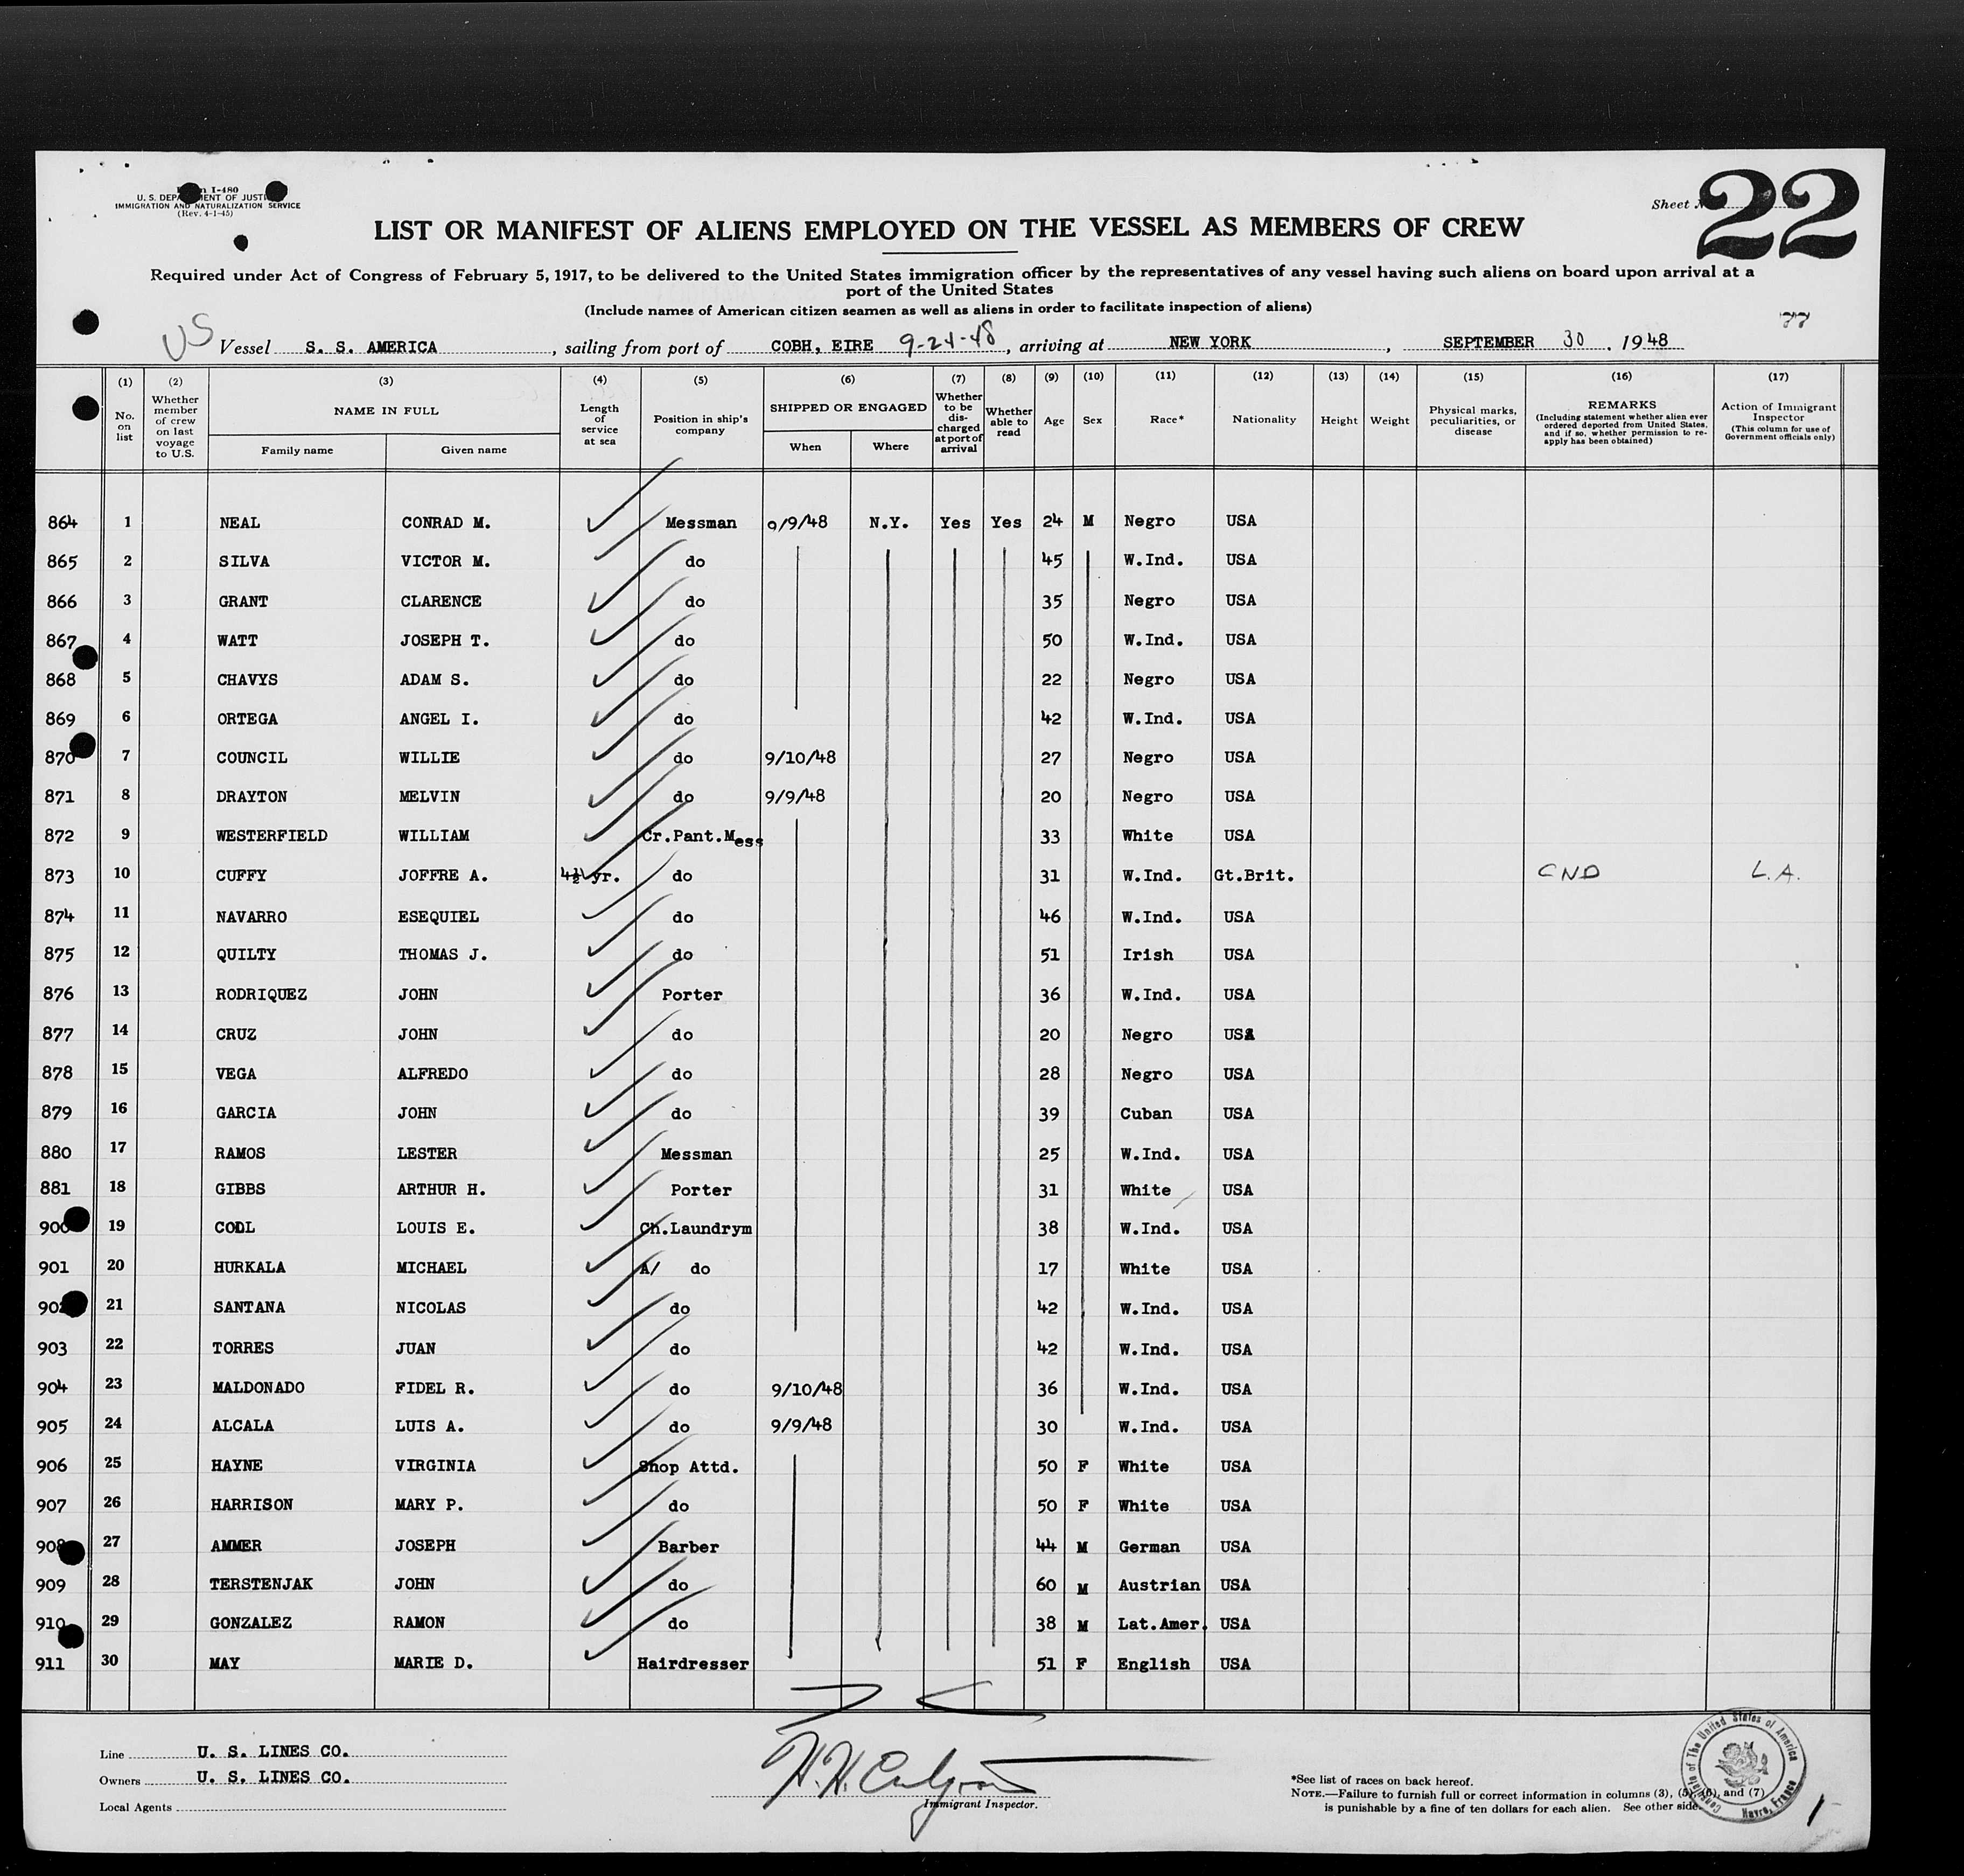 Form I-480
U. S. DEPARTMENT OF JUSTICE
IMMIGRATION AND NATURALIZATION SERVICE
(Rev. 4-1-45)
Sheet
22
LIST OR MANIFEST OF ALIENS EMPLOYED ON THE VESSEL AS MEMBERS OF CREW
Required under Act of Congress of February 5, 1917, to be delivered to the United States immigration officer by the representatives of any vessel having such aliens on board upon arrival at a
port of the United States
(Include names of American citizen seamen as well as aliens in order to facilitate inspection of aliens)
US Vessel S. S. AMERICA, sailing from port of COBH, EIRE 9-24-48, arriving at NEW YORK, SEPTEMBER 30, 1948
(1) No. on list
(2) Whether member of crew on last voyage to U.S.
(3) NAME IN FULL Family name Given name
(4) Length of service at sea
(5) Position in ship's company
(6) SHIPPED OR ENGAGED When Where
(7) Whether to be discharged at port of arrival
(8) Whether able to read
(9) Age
(10) Sex
(11) Race*
(12) Nationality
(13) Height
(14) Weight
(15) Physical marks, peculiarities, or disease
(16) REMARKS (Including statement whether alien ever ordered deported from United States, and if so, whether permission to re-apply has been obtained)
(17) Action of Immigrant Inspector (This column for use of Government officials only)
864 1 NEAL CONRAD M. Messman 9/9/48 N.Y. Yes Yes 24 M Negro USA
865 2 SILVA VICTOR M. do 45 W.Ind. USA
866 3 GRANT CLARENCE do 35 Negro USA
867 4 WATT JOSEPH T. do 50 W.Ind. USA
868 5 CHAVYS ADAM S. do 22 Negro USA
869 6 ORTEGA ANGEL I. do 42 W.Ind. USA
870 7 COUNCIL WILLIE do 9/10/48 27 Negro USA
871 8 DRAYTON MELVIN do 9/9/48 20 Negro USA
872 9 WESTERFIELD WILLIAM Cr.Pant.Mess 33 White USA
873 10 CUFFY JOFFRE A. 4½ yr. do 31 W.Ind. Gt.Brit. CND L.A.
874 11 NAVARRO ESEQUIEL do 46 W.Ind. USA
875 12 QUILTY THOMAS J. do 51 Irish USA
876 13 RODRIQUEZ JOHN Porter 36 W.Ind. USA
877 14 CRUZ JOHN do 20 Negro USA
878 15 VEGA ALFREDO do 28 Negro USA
879 16 GARCIA JOHN do 39 Cuban USA
880 17 RAMOS LESTER Messman 25 W.Ind. USA
881 18 GIBBS ARTHUR H. Porter 31 White USA
900 19 CODL LOUIS E. Ch.Laundrym 38 W.Ind. USA
901 20 HURKALA MICHAEL A/ do 17 White USA
902 21 SANTANA NICOLAS do 42 W.Ind. USA
903 22 TORRES JUAN do 42 W.Ind. USA
904 23 MALDONADO FIDEL R. do 9/10/48 36 W.Ind. USA
905 24 ALCALA LUIS A. do 9/9/48 30 W.Ind. USA
906 25 HAYNE VIRGINIA Shop Attd. 50 F White USA
907 26 HARRISON MARY P. do 50 F White USA
908 27 AMMER JOSEPH Barber 44 M German USA
909 28 TERSTENJAK JOHN do 60 M Austrian USA
910 29 GONZALEZ RAMON do 38 M Lat.Amer. USA
911 30 MAY MARIE D. Hairdresser 51 F English USA
Line U. S. LINES CO.
Owners U. S. LINES CO.
Local Agents
Immigrant Inspector.
*See list of races on back hereof.
NOTE.—Failure to furnish full or correct information in columns (3), (5), (6), and (7)
is punishable by a fine of ten dollars for each alien. See other side.
Consulate of The United States of America
Havre, France